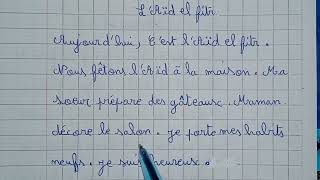 L'Aïd el fitr
Aujourd'hui, C'est l'Aïd el fitr.
Nous fêtons l'Aïd à la maison. Ma
soeur prépare des gâteaux. Maman
décore le salon. je porte mes habits
neufs. je suis heureux.